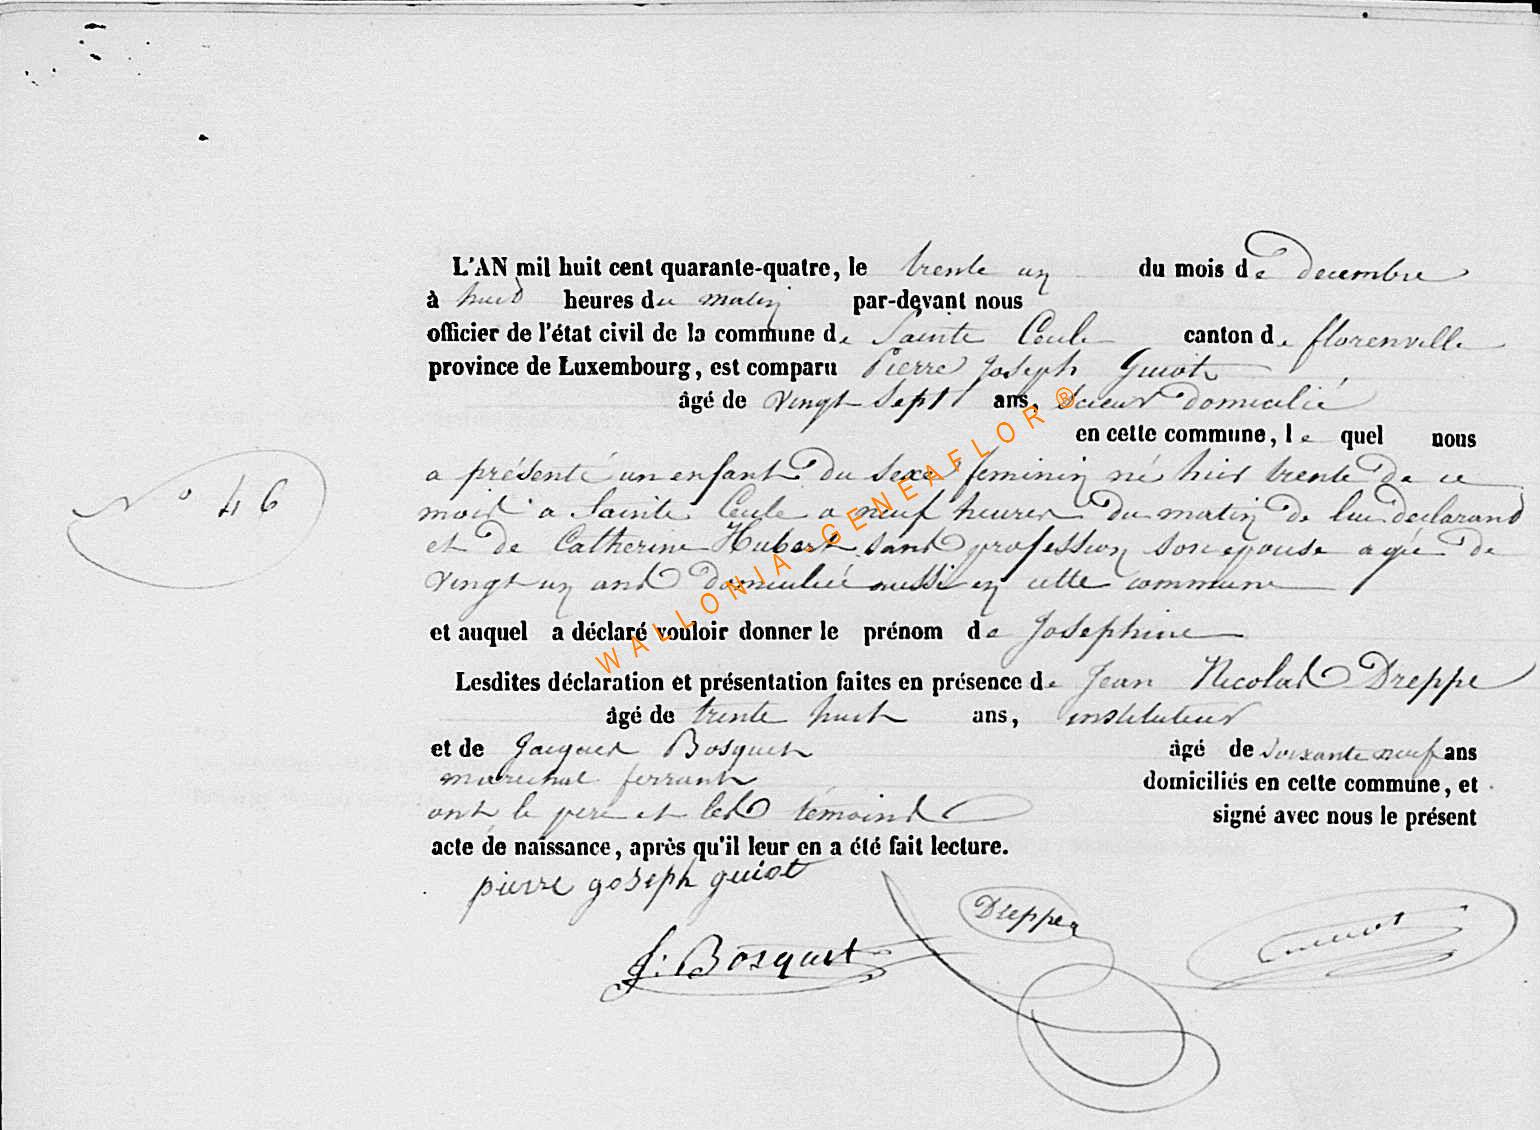 L'AN mil huit cent quarante-quatre, le trente un du mois de decembre
à huit heures du matin par-devant nous
officier de l'état civil de la commune de Sainte Cecile canton de florenville
province de Luxembourg, est comparu Pierre Joseph Guiot
âgé de vingt sept ans, scieur domicilié
en cette commune, le quel nous
N° 46
a présenté un enfant du sexe feminin né hier trente de ce
mois a Sainte Cecile a neuf heures du matin de lui declarant
et de Catherine Hubert sans profession son epouse agée de
vingt un ans domiciliée aussi en cette commune
et auquel a déclaré vouloir donner le prénom de Josephine
Lesdites déclaration et présentation faites en présence de Jean Nicolas Dreppe
âgé de trente huit ans, instituteur
et de Jacques Bosquet âgé de soixante neuf ans
marechal ferrant domiciliés en cette commune, et
ont le pere et les témoins signé avec nous le présent
acte de naissance, après qu'il leur en a été fait lecture.
pierre joseph guiot
Dreppe
J. Bosquet
WALLONIA-GENEAFLOR ®